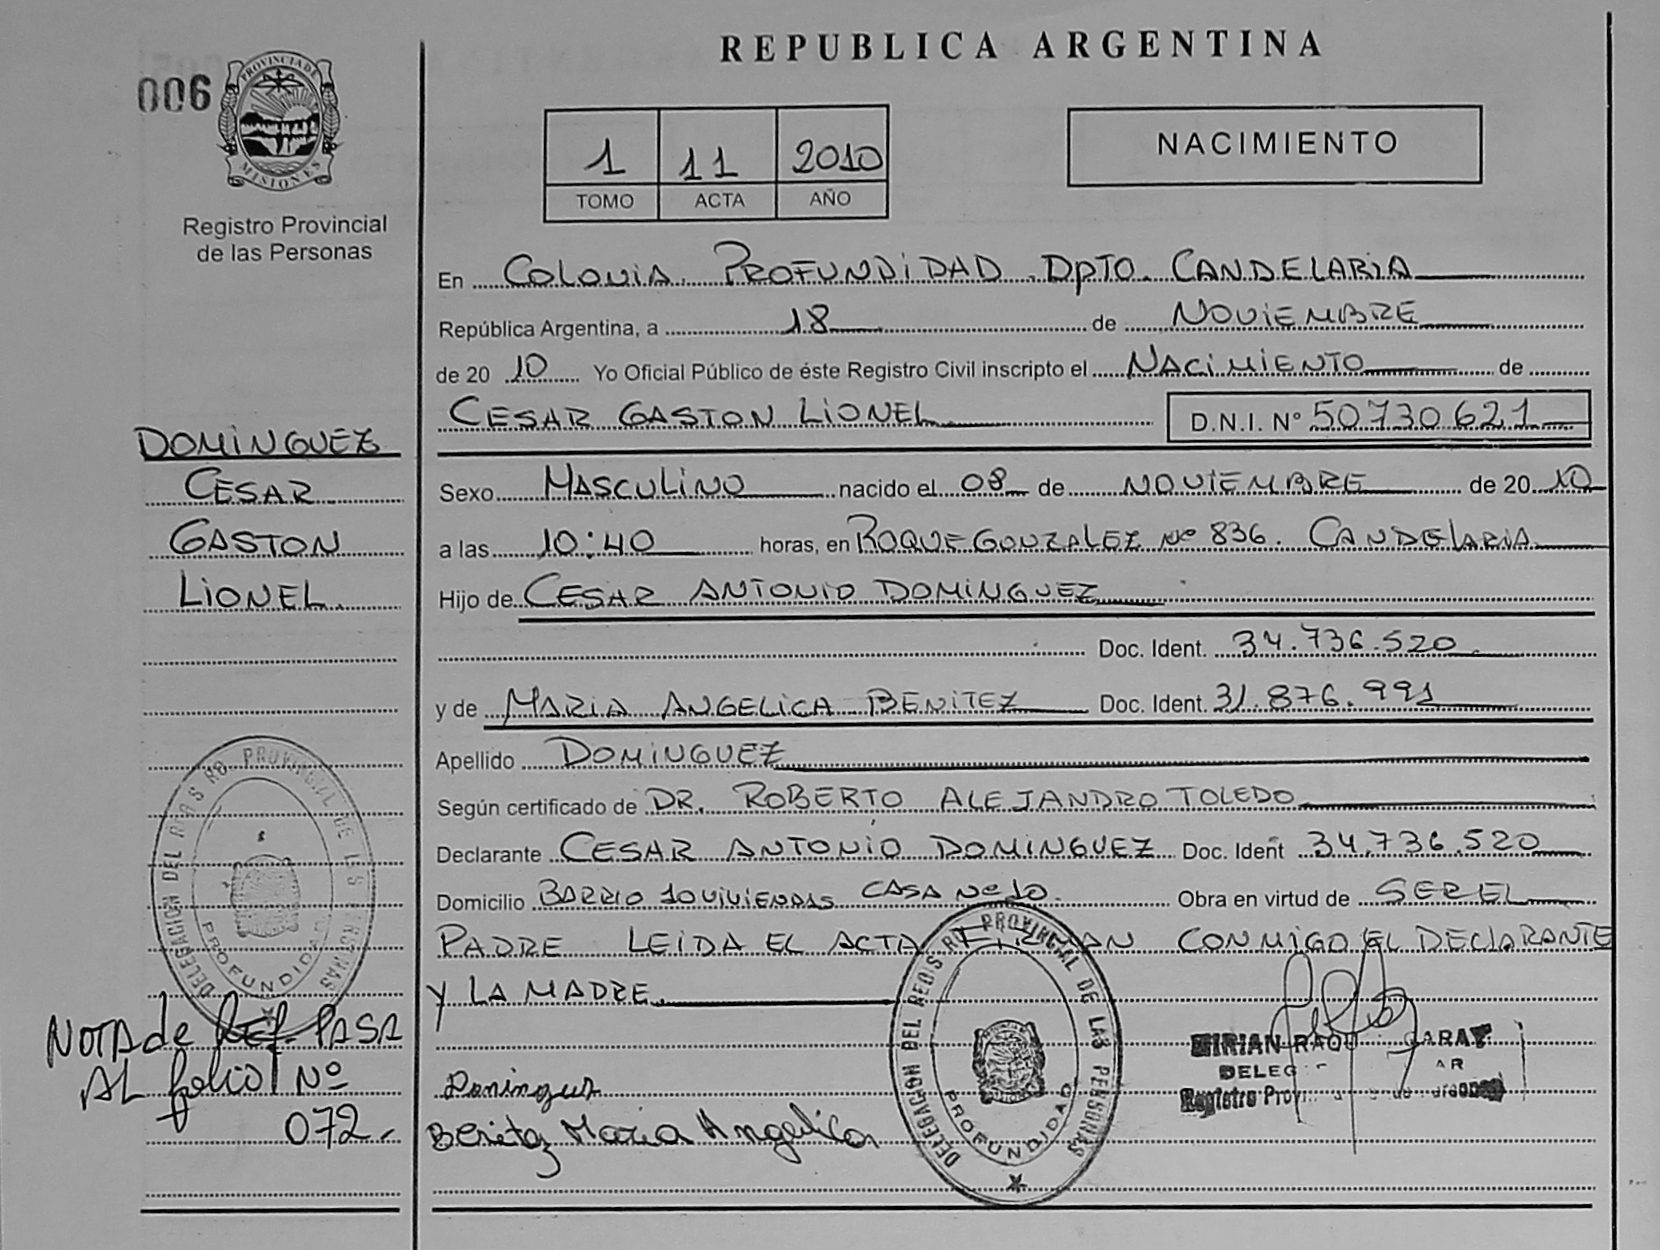 REPUBLICA ARGENTINA
006
PROVINCIA DE
MISIONES
Registro Provincial
de las Personas
1 11 2010
TOMO ACTA AÑO
NACIMIENTO
En COLONIA PROFUNDIDAD DPTO. CANDELARIA
República Argentina, a 18 de NOVIEMBRE
de 20 10 Yo Oficial Público de éste Registro Civil inscripto el NACIMIENTO de
CESAR GASTON LIONEL D.N.I. Nº 50730621
DOMINGUEZ
CESAR
GASTON
LIONEL
Sexo MASCULINO nacido el 08 de NOVIEMBRE de 20 10
a las 10:40 horas, en ROQUE GONZALEZ Nº 836. CANDELARIA
Hijo de CESAR ANTONIO DOMINGUEZ
Doc. Ident. 34.736.520
y de MARIA ANGELICA BENITEZ Doc. Ident. 31.876.991
Apellido DOMINGUEZ
Según certificado de DR. ROBERTO ALEJANDRO TOLEDO
Declarante CESAR ANTONIO DOMINGUEZ Doc. Ident 34.736.520
Domicilio BARRIO 10 VIVIENDAS CASA Nº 10. Obra en virtud de SER EL
PADRE LEIDA EL ACTA CONMIGO EL DECLARANTE
Y LA MADRE
NOTA de Ref. PASA
AL folio Nº
072.
DELEGACION DEL REGISTRO PROVINCIAL DE LAS PERSONAS
PROFUNDIDAD
Dominguez
Benitez Maria Angelica
DELEGACION DEL REGISTRO PROVINCIAL DE LAS PERSONAS
PROFUNDIDAD
MIRIAN GARAY
Registro